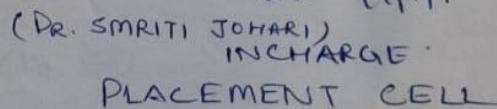 (DR. SMRITI JOHARI)
INCHARGE.
PLACEMENT CELL